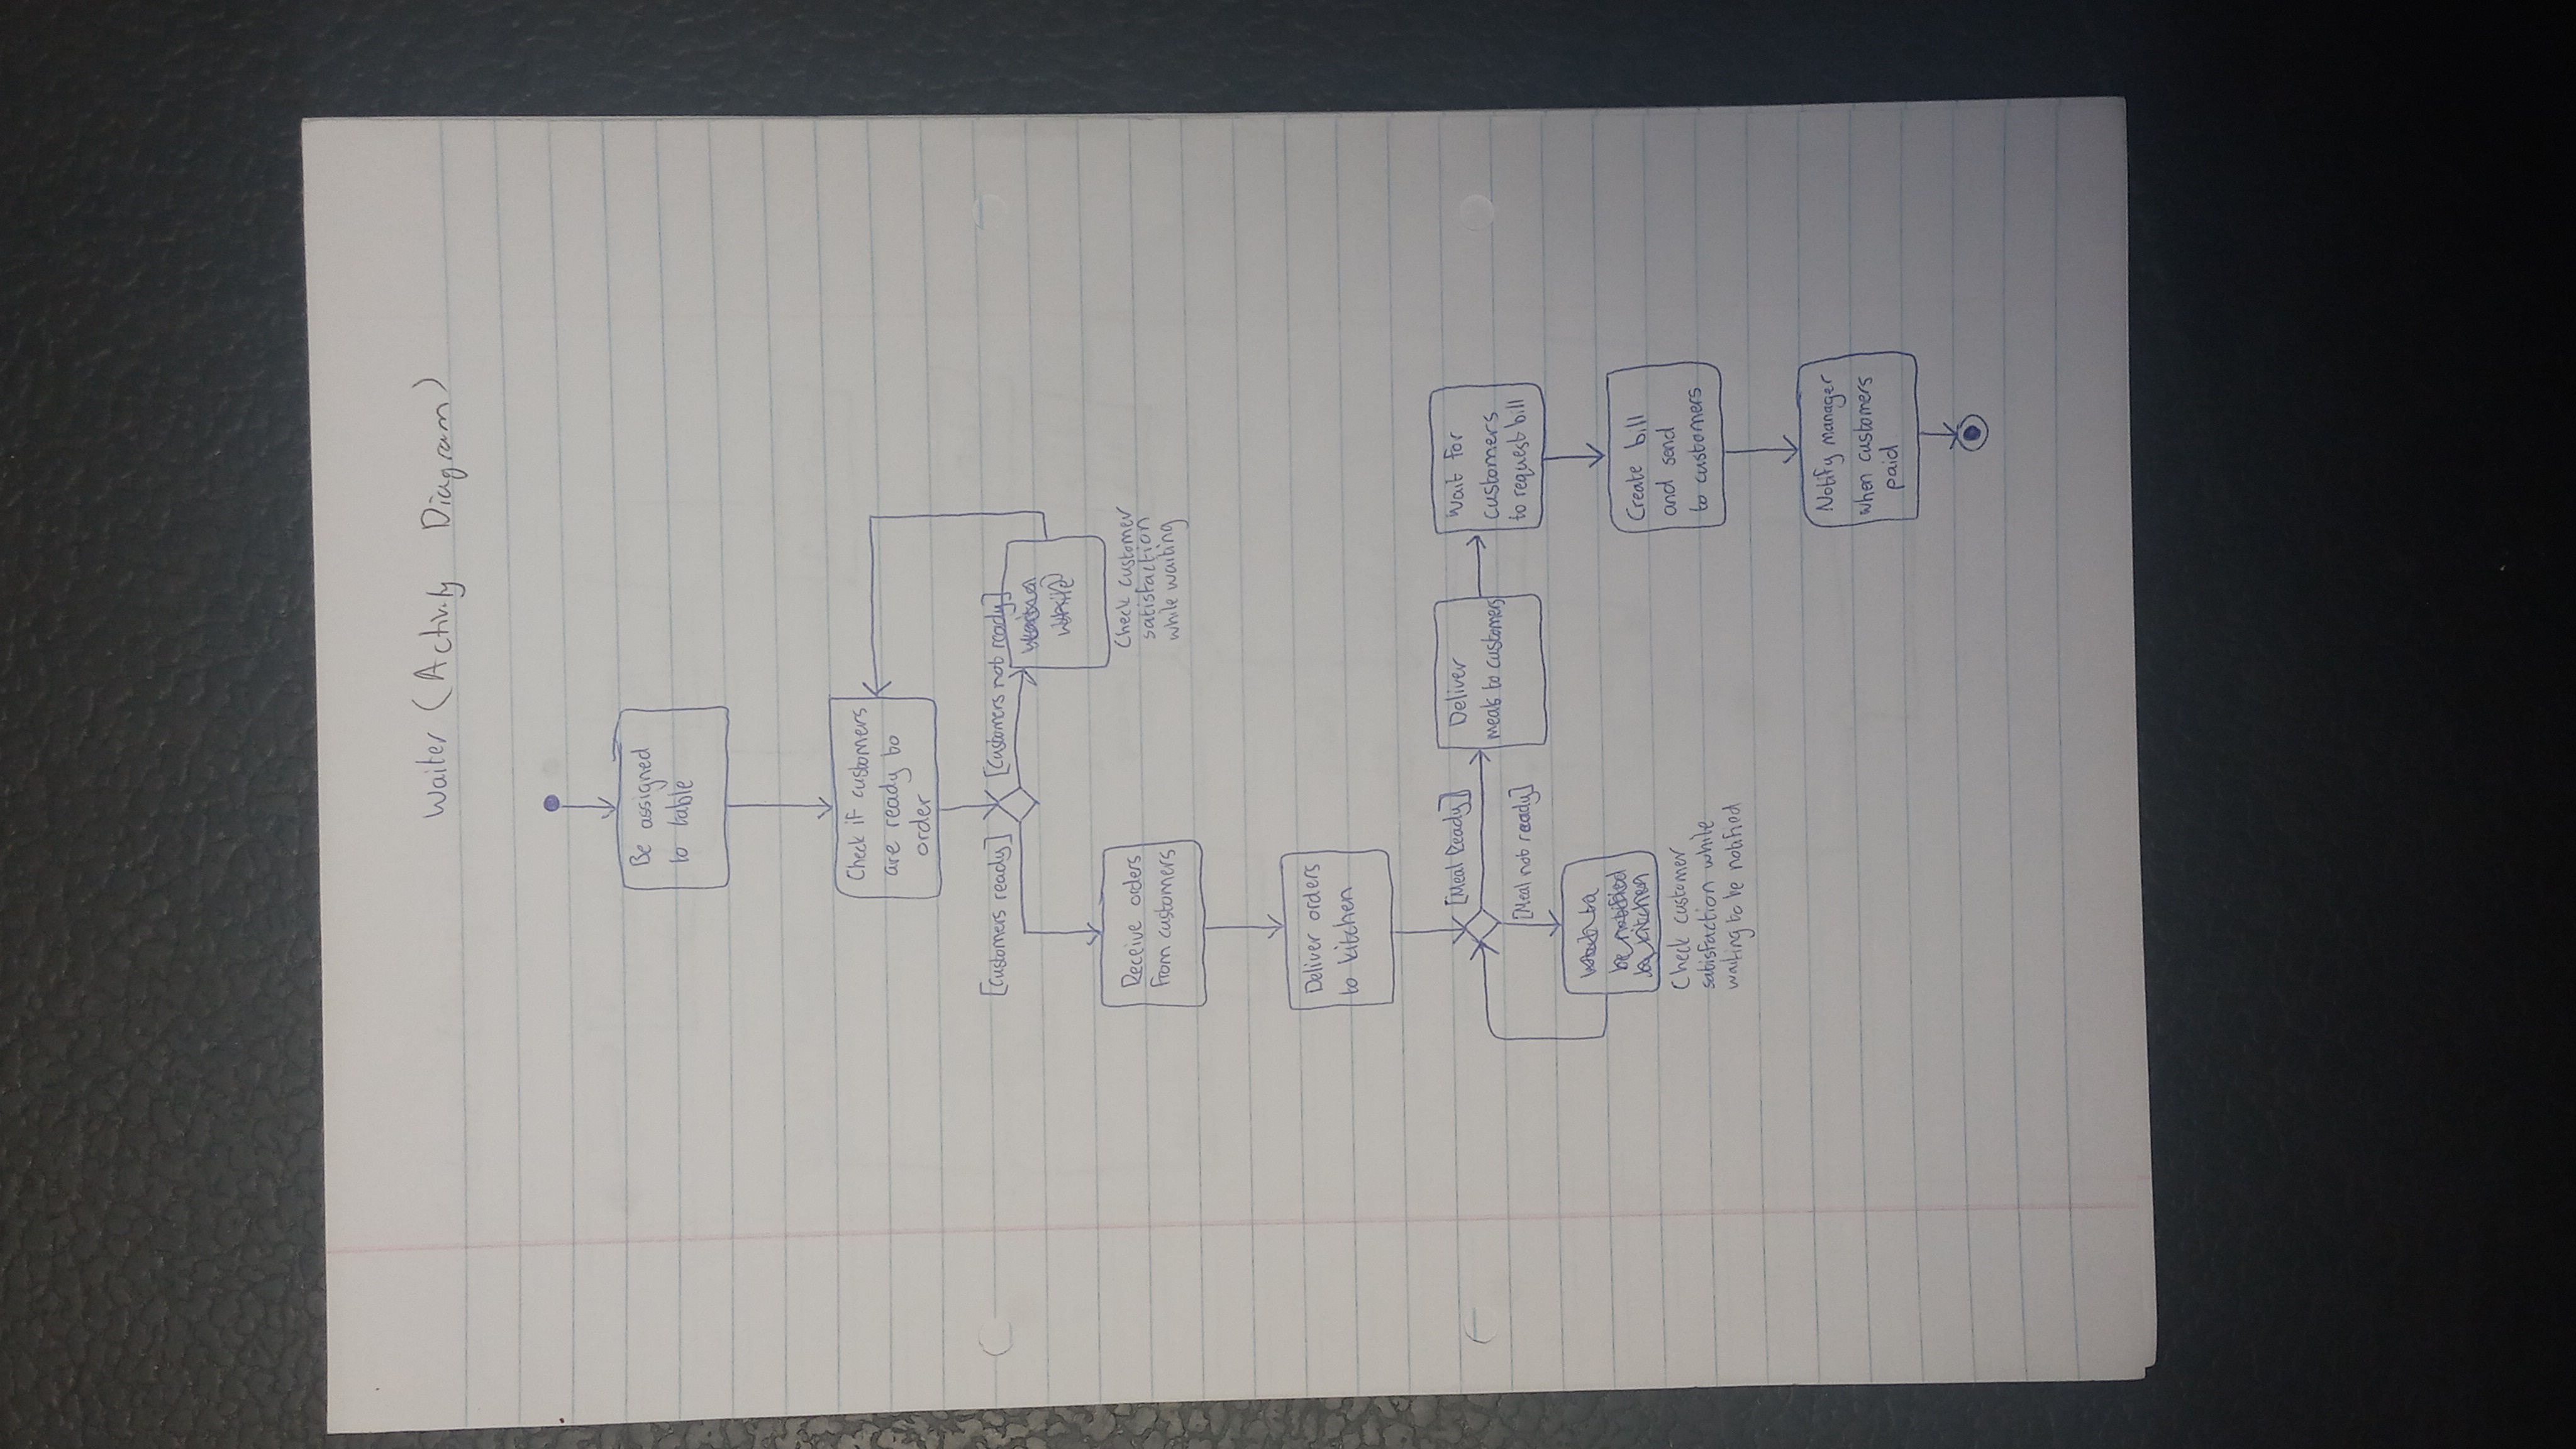 Waiter (Activity Diagram)
Be assigned
to table
Check if customers
are ready to
order
[Customers ready]
[Customers not ready]
Check customer
satisfaction
while waiting
Receive orders
from customers
Deliver orders
to kitchen
[Meal Ready]
[Meal not ready]
Check customer
satisfaction while
waiting to be notified
Deliver
meals to customers
Wait for
customers
to request bill
Create bill
and send
to customers
Notify manager
when customers
paid